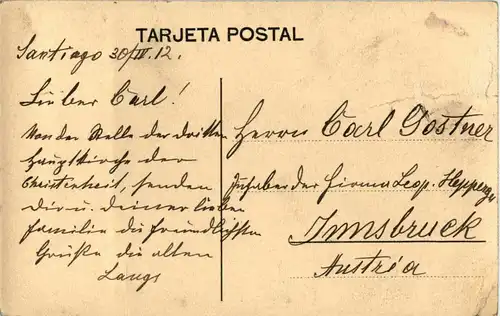 TARJETA POSTAL
Santiago 30/IV.12.
Lieber Carl!
Von der Stelle der dritten
Hauptkirche der
Christenheit, senden
dir u. deiner lieben
Familie die freundlichsten
Grüße die alten
Langs
Herrn Carl Gostner
Inhaber der Firma Leop. Hepperger
Innsbruck
Austria